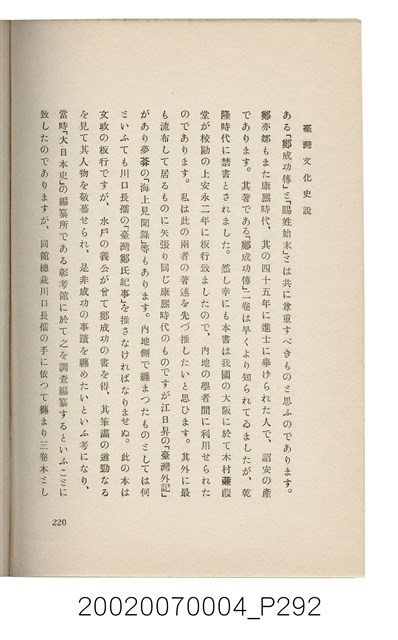 臺灣文化史說
ある「鄭成功傳」と「賜姓始末」とは共に尊重すべきものと思ふのであります。
鄭亦鄒もまた康熙時代、其の四十五年に進士に擧けられた人で、詔安の產
であります。其著である「鄭成功傳」二卷は早くより知られてゐましたが、乾
隆時代に禁書とされました。然し幸にも本書は我國の大阪に於て木村蒹葭
堂が校勘の上安永二年に板行致ましたので、內地の學者間に利用せられた
のであります。私は此の兩者の著述を先づ推したいと思ひます。其外に最
も流布して居るものに矢張り同じ康熙時代のものですが江日昇の「臺灣外記」
があり夢菴の「海上見聞錄」等もあります。內地側で纏まつたものとしては何
といふても川口長孺の「臺灣鄭氏紀事」を推さなければなりませぬ。此の本は
文政の板行ですが、水戶の義公が曾て鄭成功の書を得、其筆畵の遒勁なる
を見て其人物を敬慕せられ、是非成功の事蹟を纏めたいといふ考になり、
當時「大日本史」の編纂所である彰考館に於て之を調査編纂するといふことに
致したのでありますが、同館總裁川口長孺の手に依つて纏まり三卷本とし
220
20020070004_P292